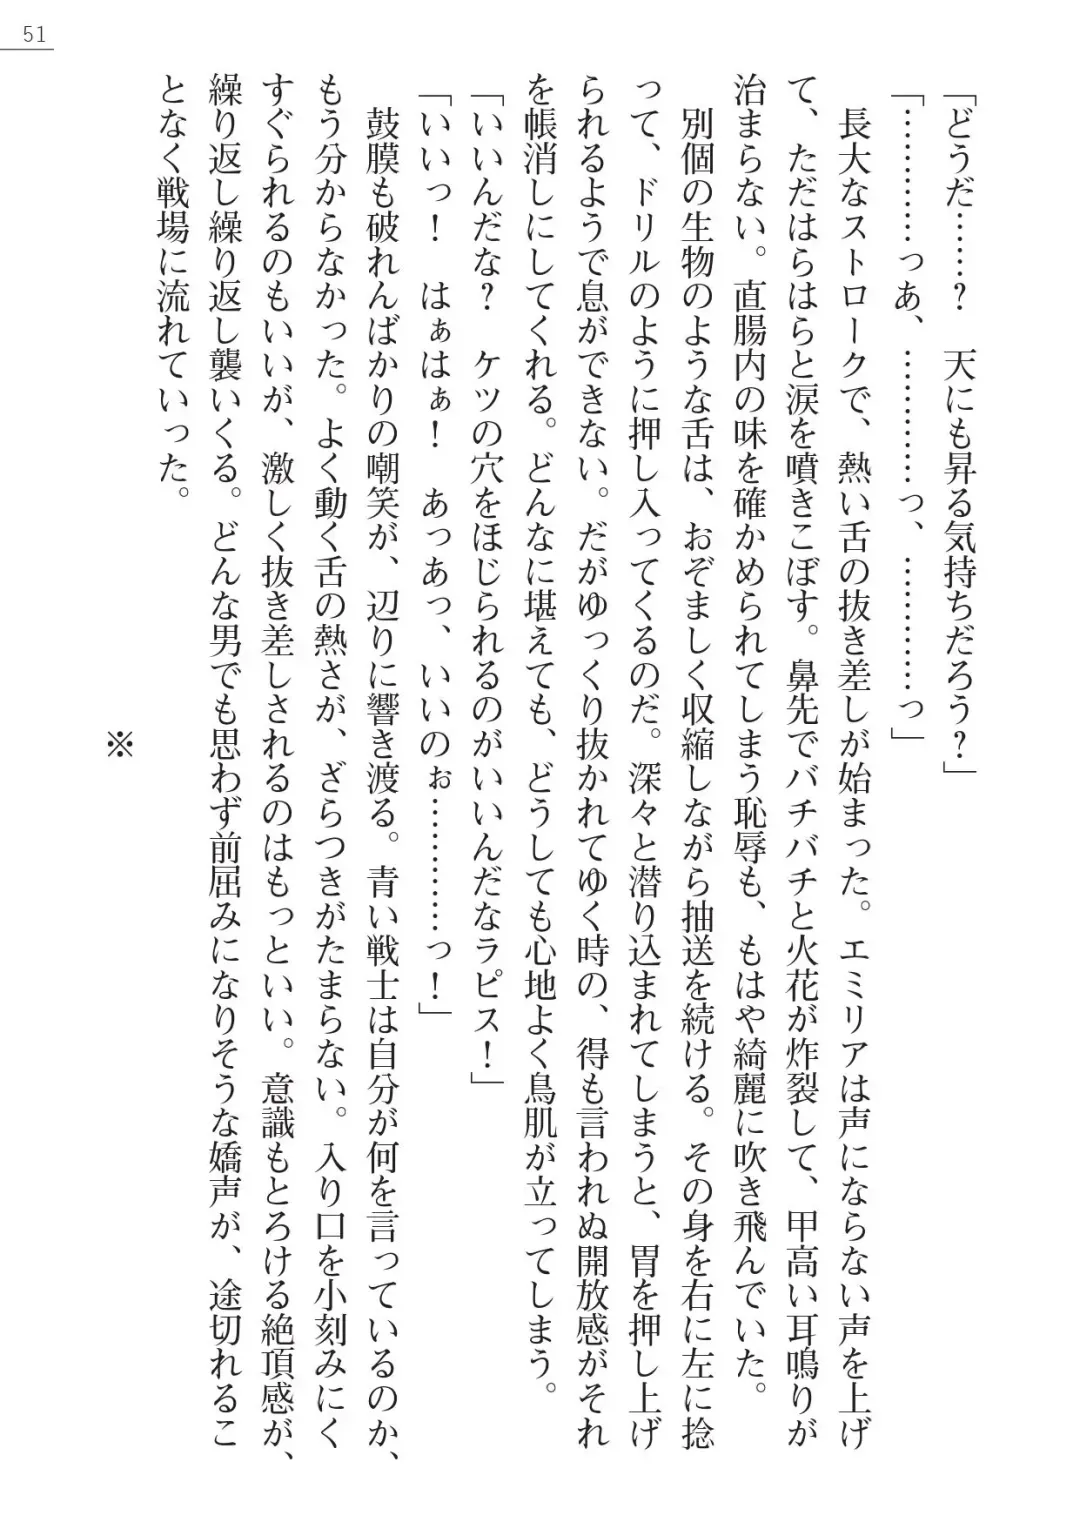 51
「どうだ……？　天にも昇る気持ちだろう？」
「…………っあ、…………っ、…………っ」
　長大なストロークで、熱い舌の抜き差しが始まった。エミリアは声にならない声を上げ
て、ただはらはらと涙を噴きこぼす。鼻先でバチバチと火花が炸裂して、甲高い耳鳴りが
治まらない。直腸内の味を確かめられてしまう恥辱も、もはや綺麗に吹き飛んでいた。
　別個の生物のような舌は、おぞましく収縮しながら抽送を続ける。その身を右に左に捻
って、ドリルのように押し入ってくるのだ。深々と潜り込まれてしまうと、胃を押し上げ
られるようで息ができない。だがゆっくり抜かれてゆく時の、得も言われぬ開放感がそれ
を帳消しにしてくれる。どんなに堪えても、どうしても心地よく鳥肌が立ってしまう。
「いいんだな？　ケツの穴をほじられるのがいいんだなラピス！」
「いいっ！　はぁはぁ！　あっあっ、いいのぉ…………っ！」
　鼓膜も破れんばかりの嘲笑が、辺りに響き渡る。青い戦士は自分が何を言っているのか、
もう分からなかった。よく動く舌の熱さが、ざらつきがたまらない。入り口を小刻みにく
すぐられるのもいいが、激しく抜き差しされるのはもっといい。意識もとろける絶頂感が、
繰り返し繰り返し襲いくる。どんな男でも思わず前屈みになりそうな嬌声が、途切れるこ
となく戦場に流れていった。
※